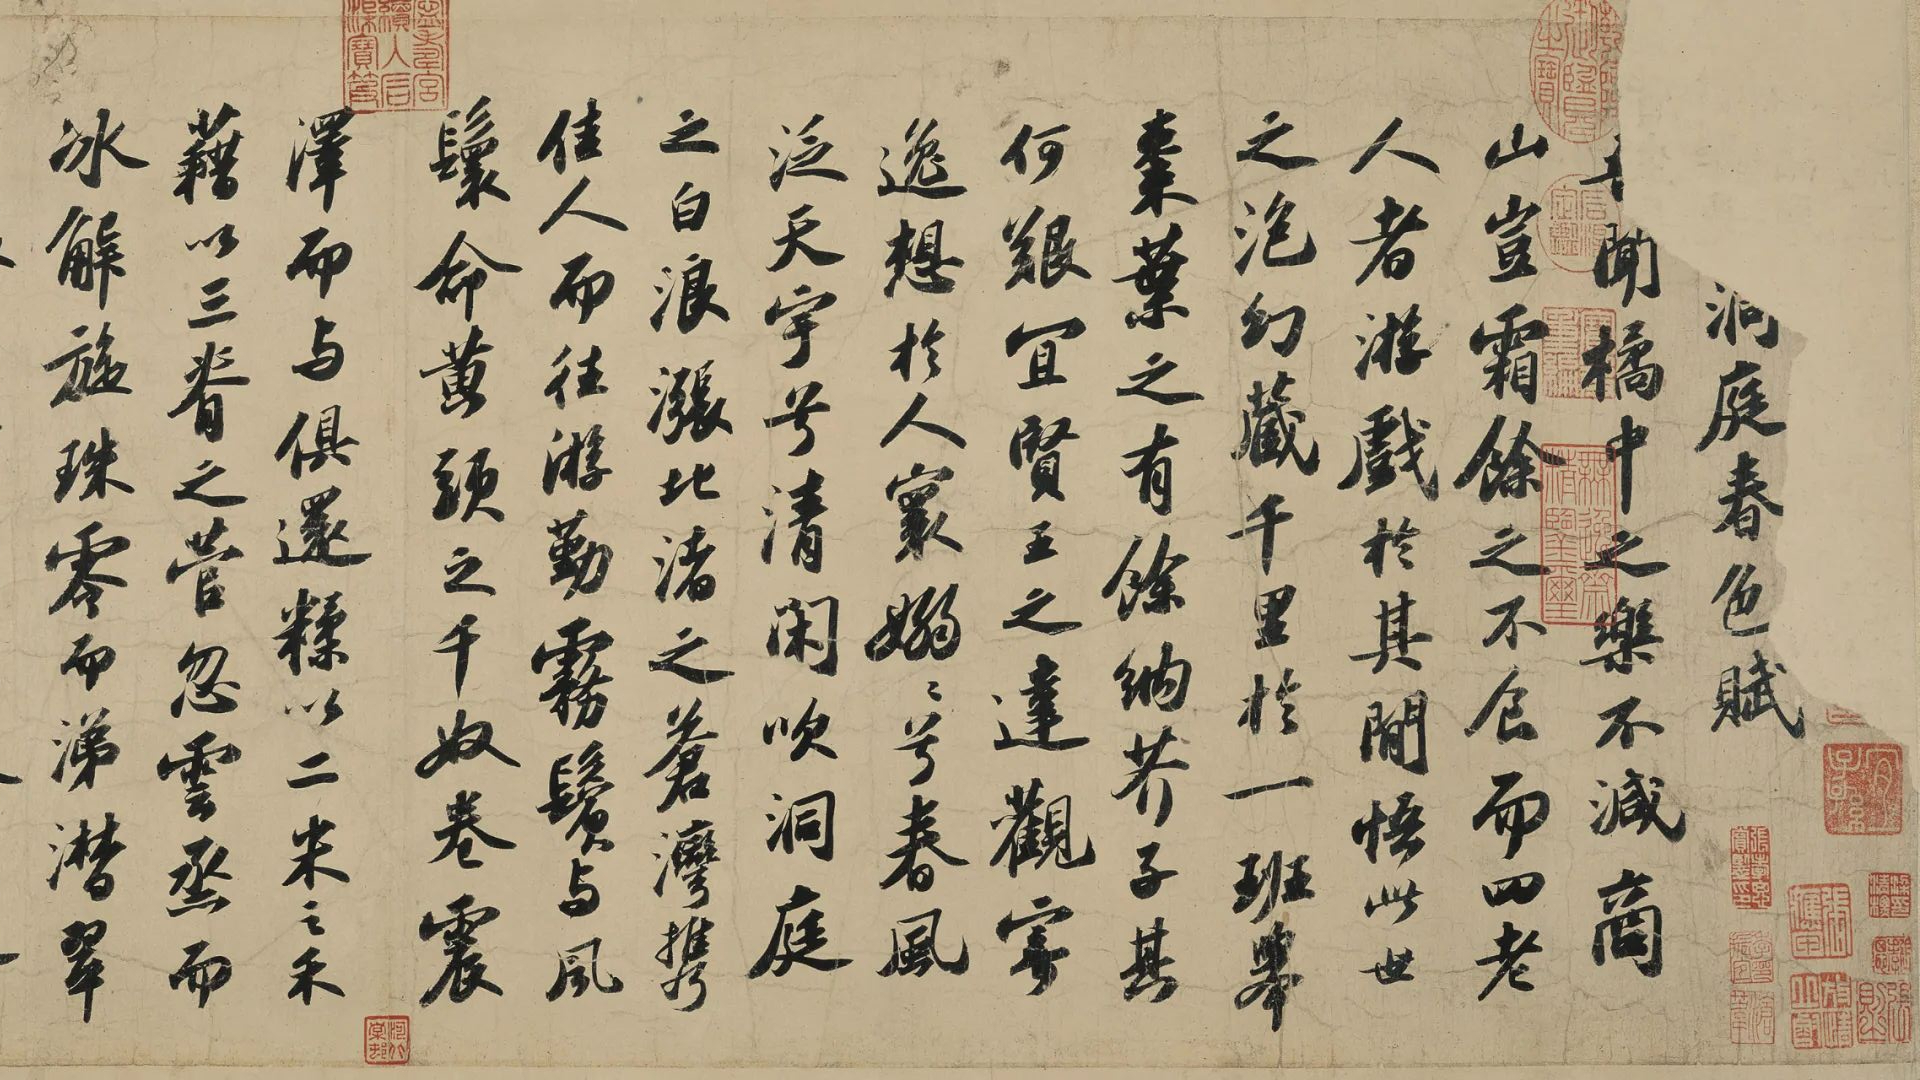 洞庭春色賦
聞橘中之樂不減商
山豈霜餘之不食而四老
人者游戲於其閒悟此世
之泡幻藏千里於一班舉
棗葉之有餘納芥子其
何艱宜賢王之達觀寄
逸想於人寰嫋〻兮春風
泛天宇兮清閑吹洞庭
之白浪漲北渚之蒼灣攜
佳人而往游勤霧鬢与風
鬟命黃頭之千奴卷震
澤而与俱還糅以二米之禾
藉以三脊之菅忽雲烝而
冰解旋珠零而涕潸翠